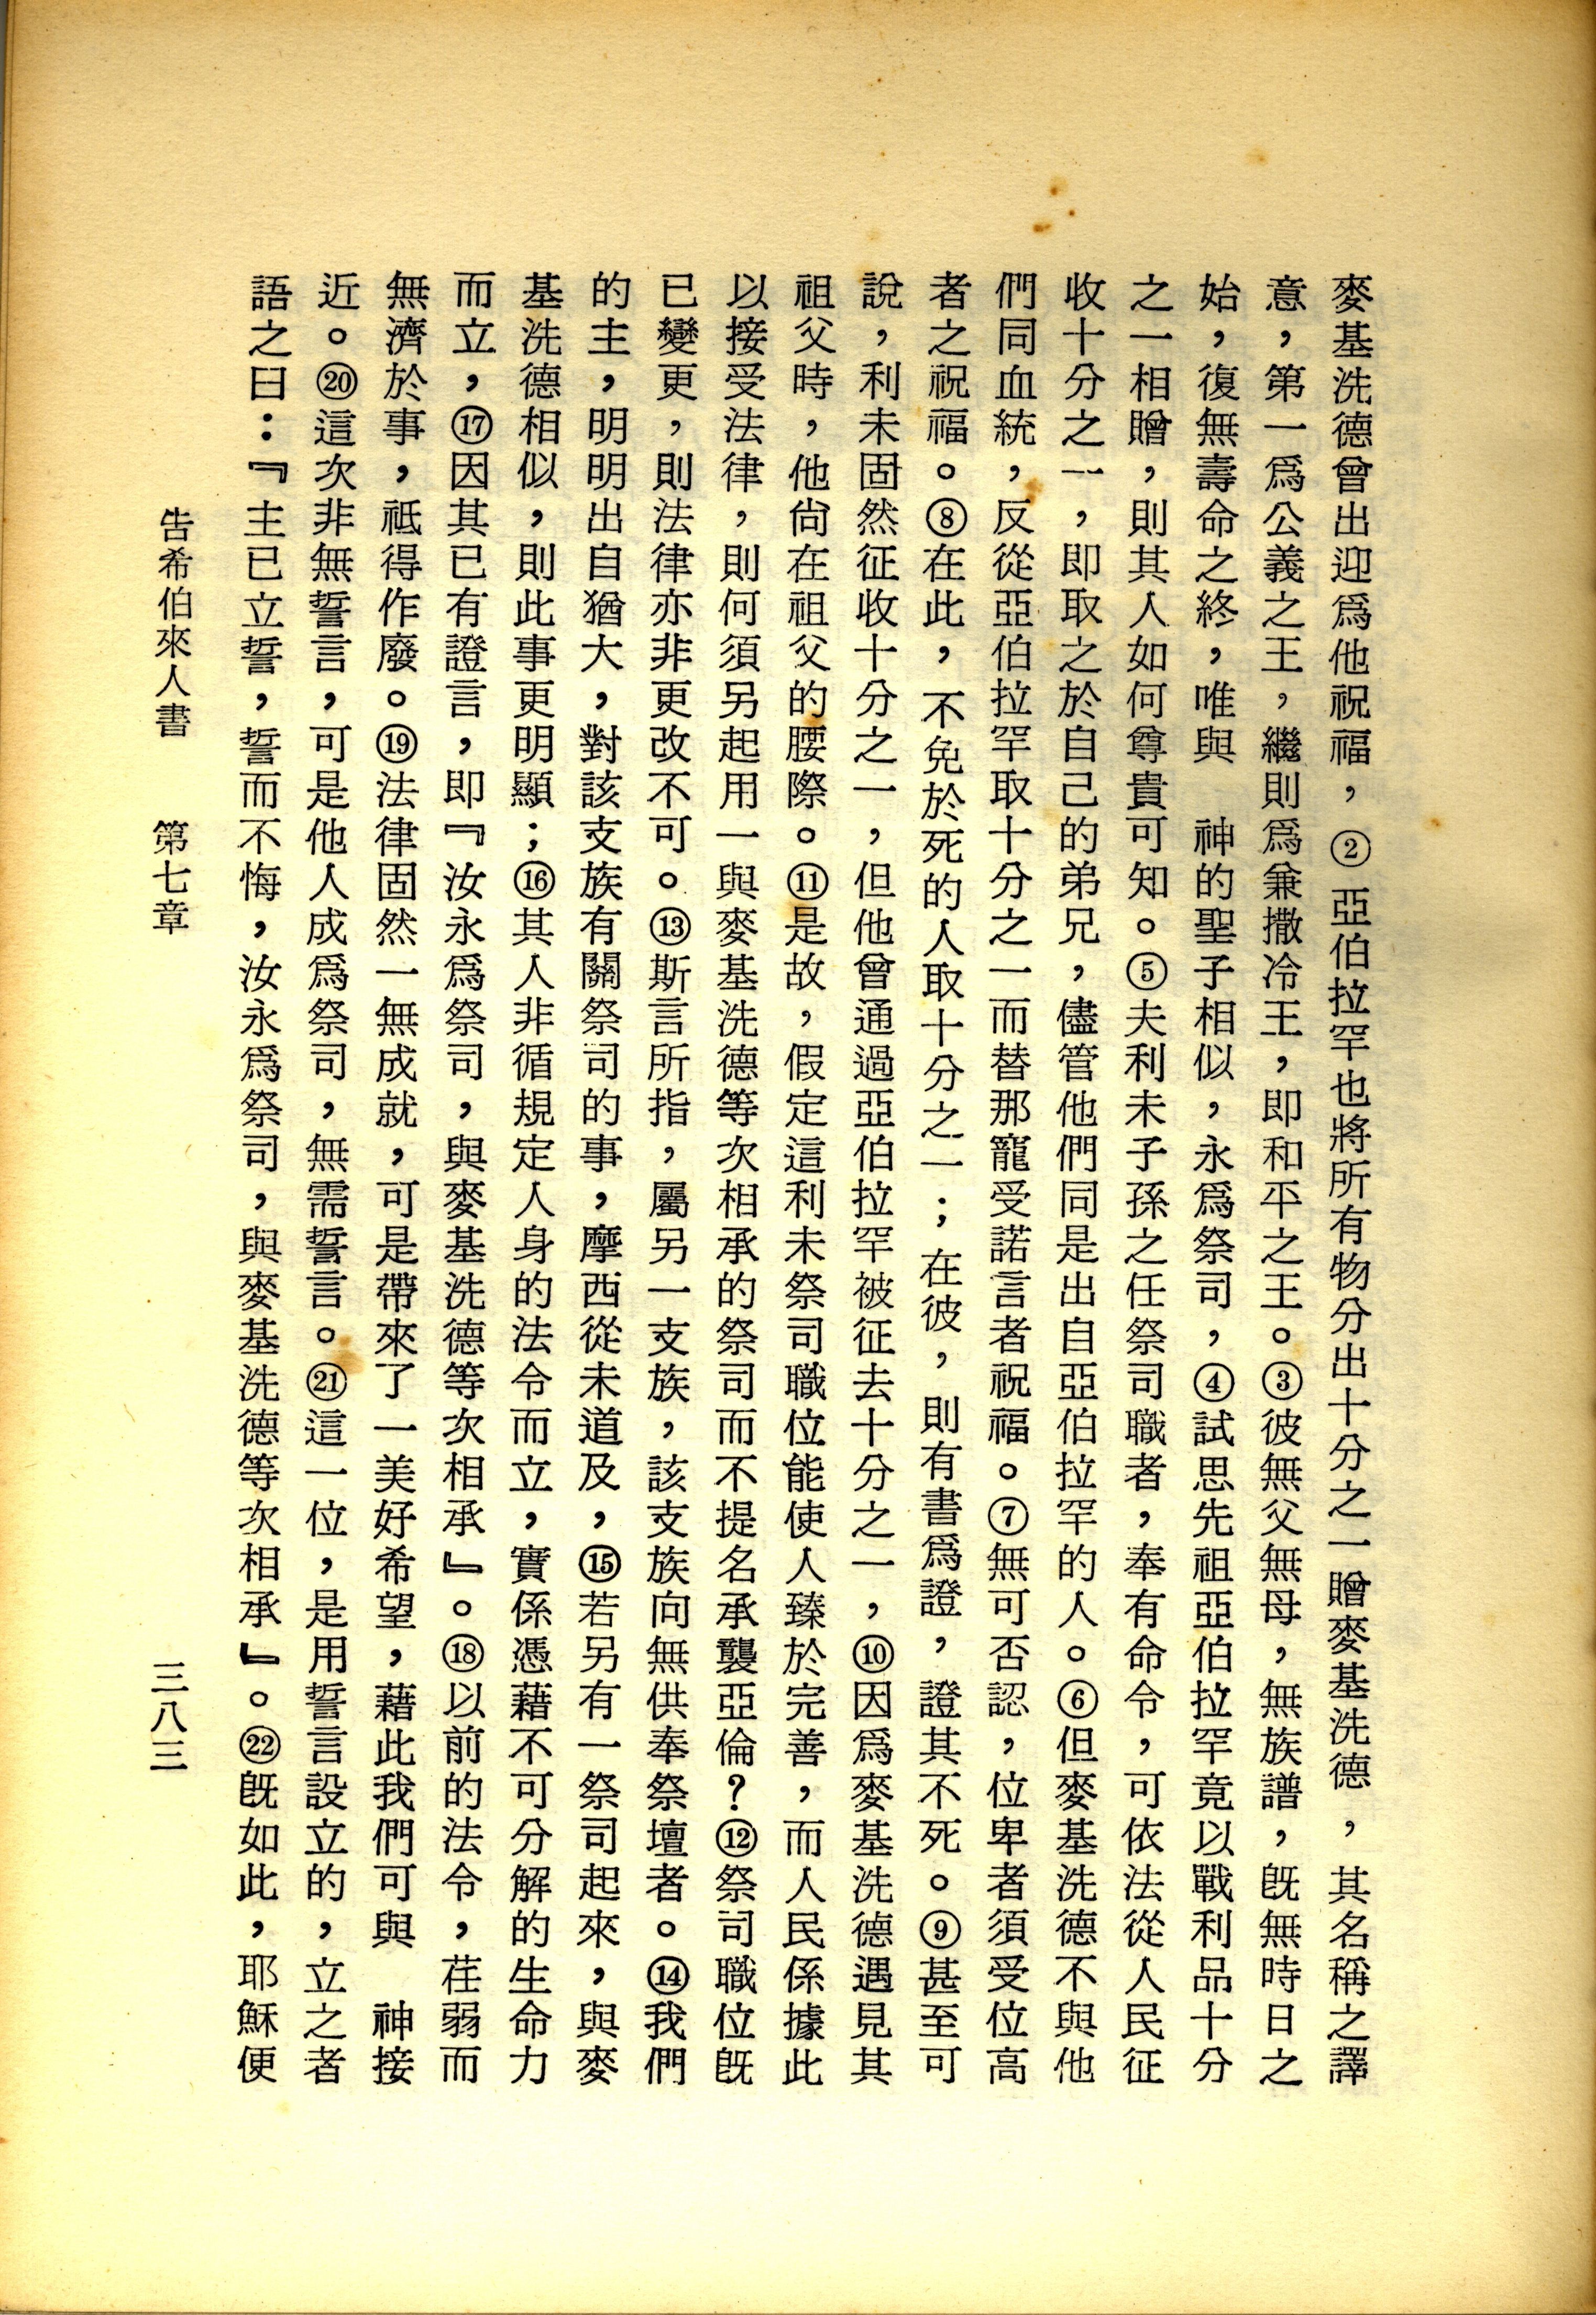 麥基洗德曾出迎爲他祝福，②亞伯拉罕也將所有物分出十分之一贈麥基洗德，其名稱之譯
意，第一爲公義之王，繼則爲兼撒冷王，即和平之王。③彼無父無母，無族譜，既無時日之
始，復無壽命之終，唯與　神的聖子相似，永爲祭司，④試思先祖亞伯拉罕竟以戰利品十分
之一相贈，則其人如何尊貴可知。⑤夫利未子孫之任祭司職者，奉有命令，可依法從人民征
收十分之一，即取之於自己的弟兄，儘管他們同是出自亞伯拉罕的人。⑥但麥基洗德不與他
們同血統，反從亞伯拉罕取十分之一而替那寵受諾言者祝福。⑦無可否認，位卑者須受位高
者之祝福。⑧在此，不免於死的人取十分之一；在彼，則有書爲證，證其不死。⑨甚至可
說，利未固然征收十分之一，但他曾通過亞伯拉罕被征去十分之一，⑩因爲麥基洗德遇見其
祖父時，他尙在祖父的腰際。⑪是故，假定這利未祭司職位能使人臻於完善，而人民係據此
以接受法律，則何須另起用一與麥基洗德等次相承的祭司而不提名承襲亞倫？⑫祭司職位既
已變更，則法律亦非更改不可。⑬斯言所指，屬另一支族，該支族向無供奉祭壇者。⑭我們
的主，明明出自猶大，對該支族有關祭司的事，摩西從未道及，⑮若另有一祭司起來，與麥
基洗德相似，則此事更明顯；⑯其人非循規定人身的法令而立，實係憑藉不可分解的生命力
而立，⑰因其已有證言，即『汝永爲祭司，與麥基洗德等次相承』。⑱以前的法令，荏弱而
無濟於事，祗得作廢。⑲法律固然一無成就，可是帶來了一美好希望，藉此我們可與　神接
近。⑳這次非無誓言，可是他人成爲祭司，無需誓言。㉑這一位，是用誓言設立的，立之者
語之曰：『主已立誓，誓而不悔，汝永爲祭司，與麥基洗德等次相承』。㉒既如此，耶穌便
告希伯來人書　第七章　三八三